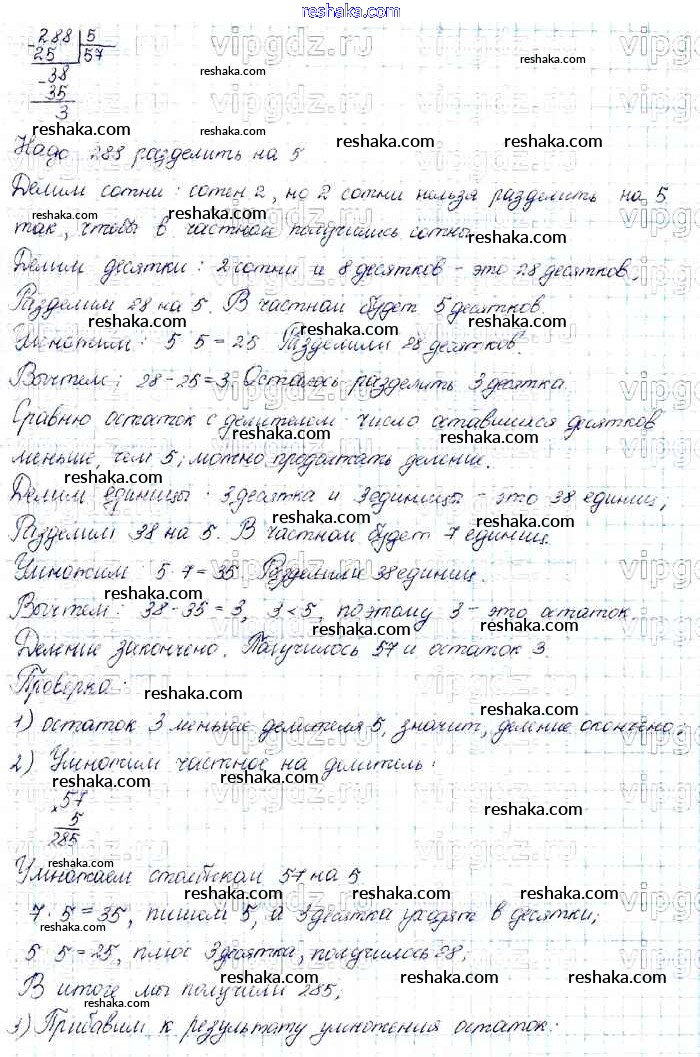 reshaka.com
288 5
25 57
38
35
3
Надо 288 разделить на 5
Делим сотни: сотен 2, но 2 сотни нельзя разделить на 5
так, чтобы в частном получились сотни.
Делим десятки: 2 сотни и 8 десятков - это 28 десятков.
Разделим 28 на 5. В частном будет 5 десятков.
Умножим: 5 5 = 25 Разделили 28 десятков.
Вычтем; 28-25=3. Осталось разделить 3 десятка.
Сравню остаток с делителем число оставшихся десятков
меньше, чем 5; можно продолжать деление.
Делим единицы: 3 десятка и 3 единицы - это 38 единиц;
Разделим 38 на 5. В частном будет 7 единиц.
Умножим 5·7=35 Разделили 38 единиц.
Вычтем: 38-35=3, 3<5, поэтому 3 - это остаток.
Деление закончено. Получилось 57 и остаток 3.
Проверка:
1) остаток 3 меньше делителя 5, значит, деление окончено;
2) Умножим частное на делитель:
× 57
5
285
Умножаем столбиком 57 на 5
7·5=35, пишем 5, а 3 десятка уходят в десятки;
5 5=25, плюс 3 десятка, получилось 28;
В итоге мы получили 285;
3) Прибавим к результату умножения остаток: